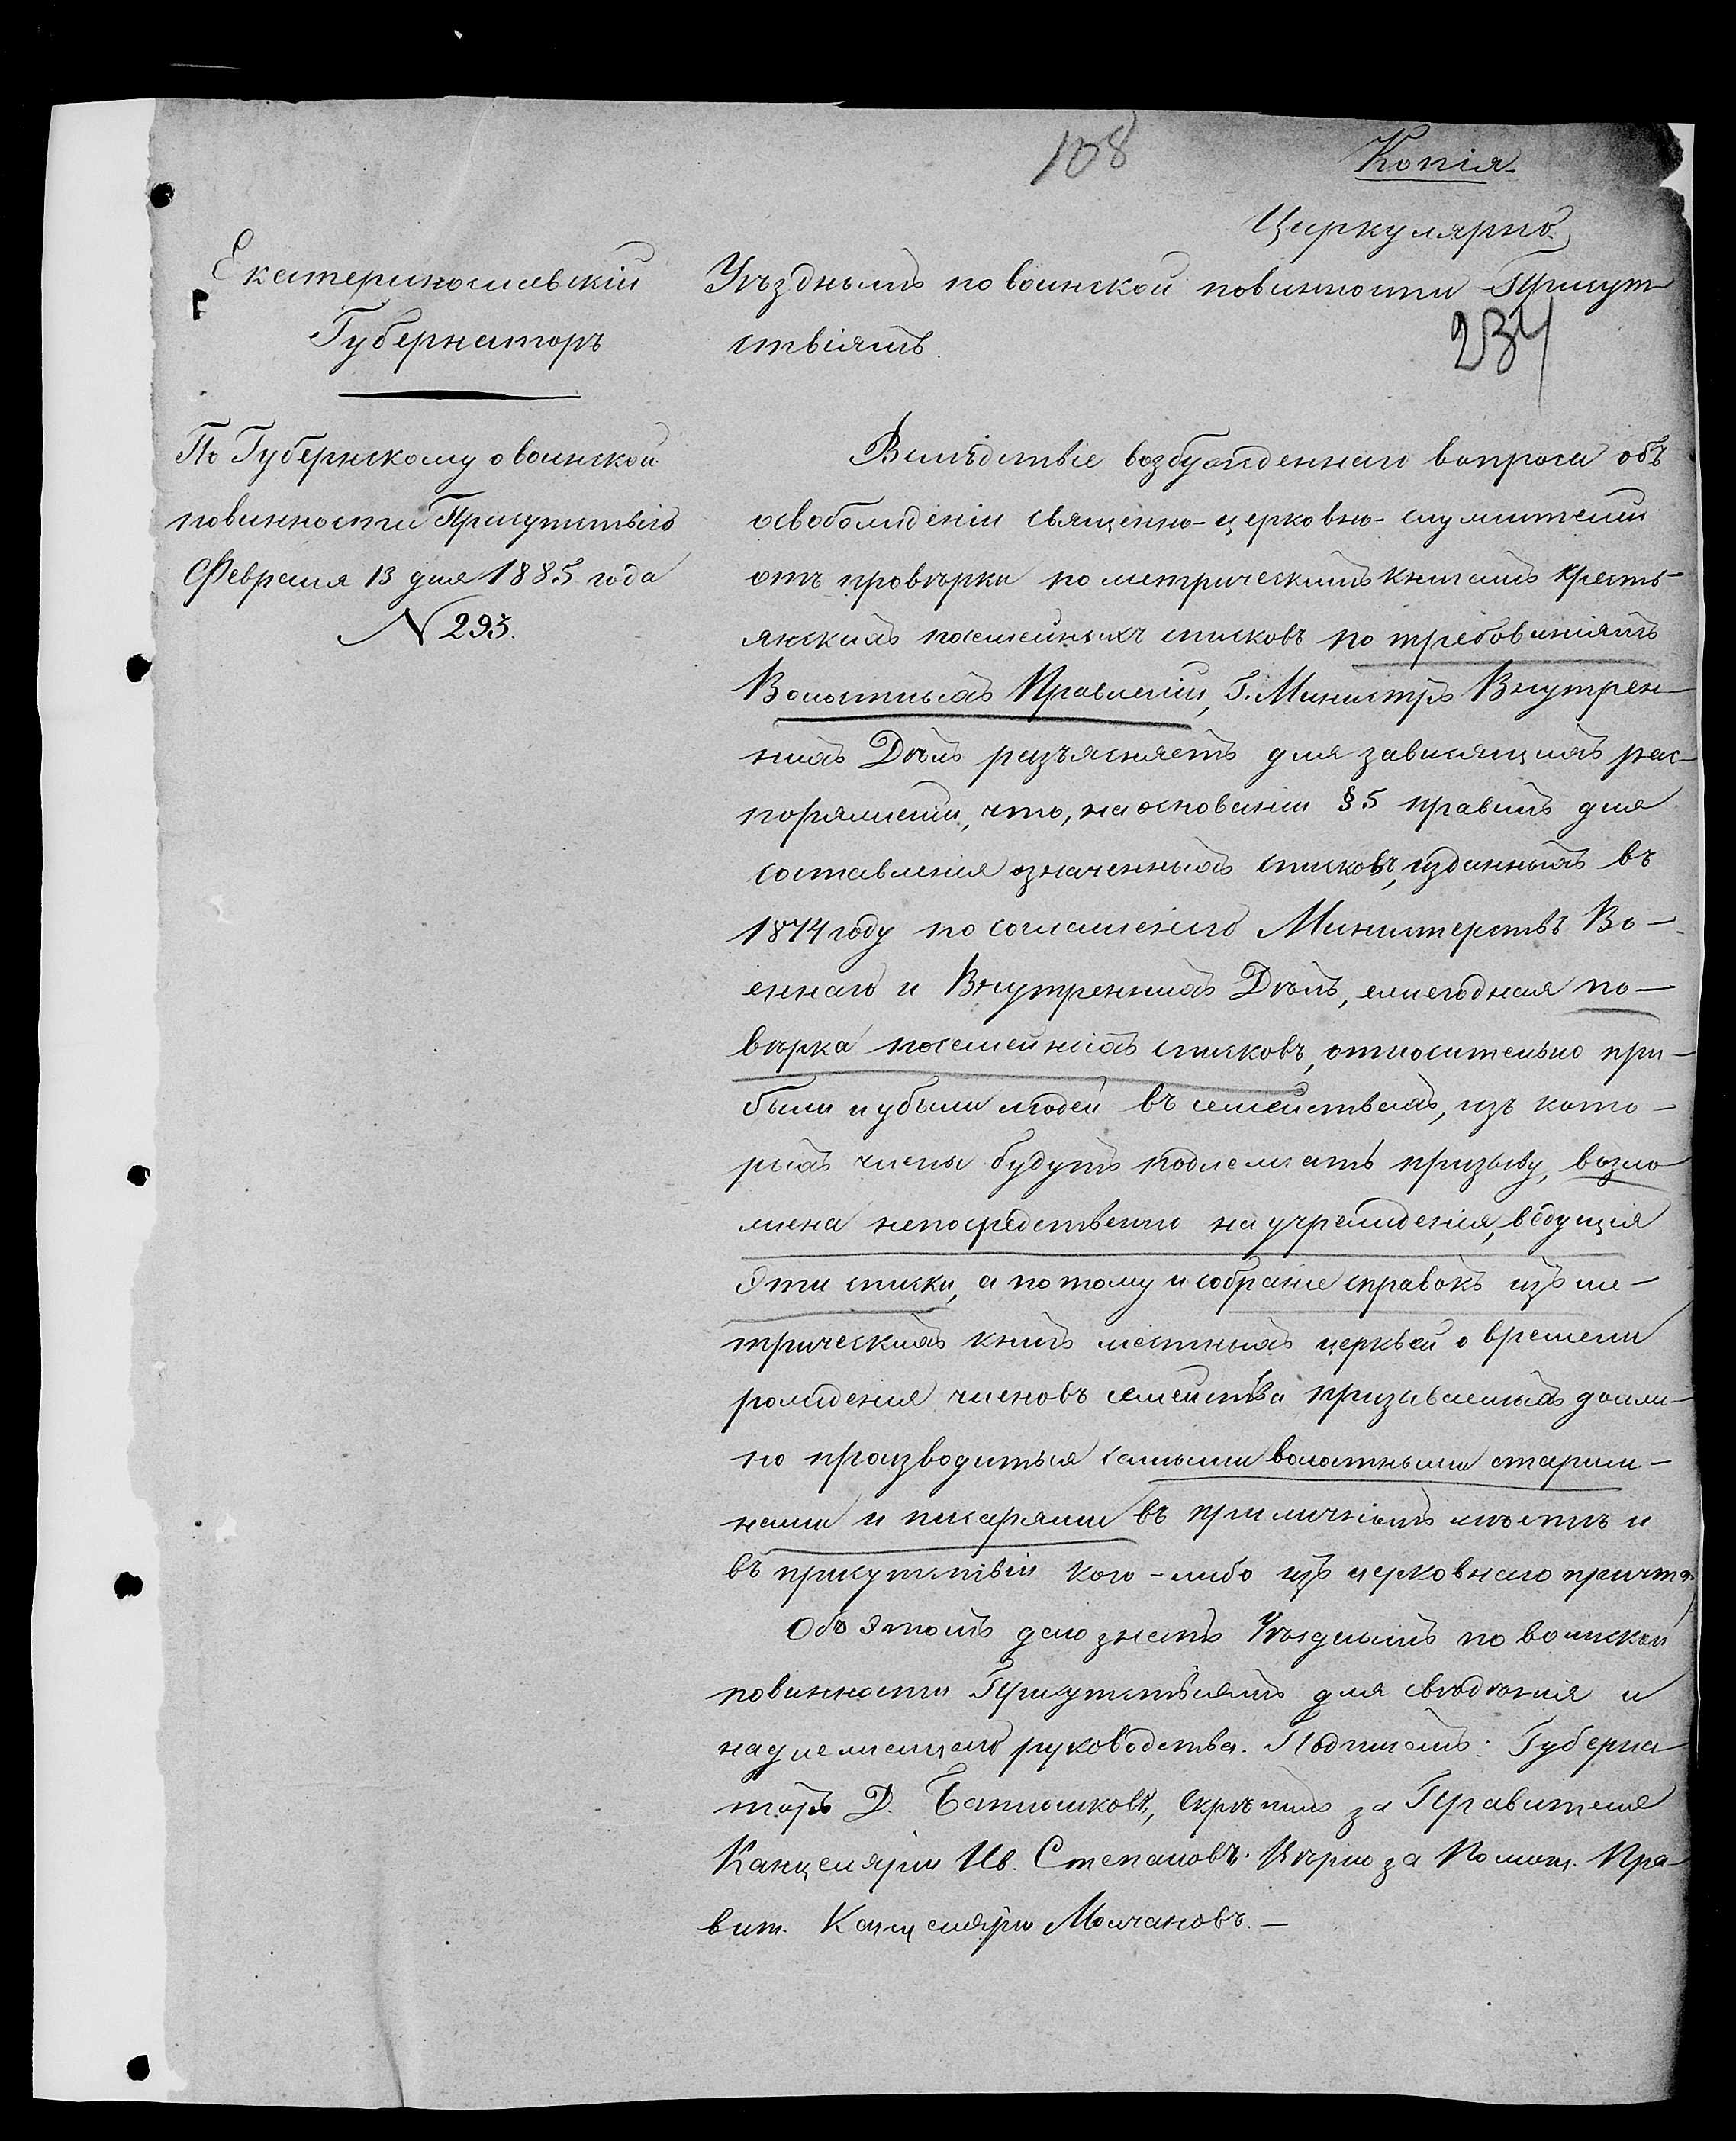 108
Копія
Циркулярно.
Екатеринославскій
Губернаторъ
По Губернскому о воинской
повинности Присутствію
Февраля 13 дня 1885 года
N 293.
Уѣзднымъ по воинской повинности Присут
ствіямъ.
234
Вслѣдствіе возбужденнаго вопроса объ
освобожденіи священно-церковно-служителей
отъ провѣрки по метрическимъ книгамъ кресть-
янскихъ посемейныхъ списковъ по требованіямъ
Волостныхъ Правленій, Г. Министръ Внутрен-
нихъ Дѣлъ разъясняетъ для зависящихъ рас-
поряженій, что, на основаніи §5 правилъ для
составленія означенныхъ списковъ, изданныхъ въ
1874 году по соглашенію Министерствъ Во-
еннаго и Внутреннихъ Дѣлъ, ежегодная по-
вѣрка посемейныхъ списковъ, относительно при-
были и убыли людей въ семействахъ, изъ кото-
рыхъ члены будутъ подлежать призыву, возло
жена непосредственно на учрежденія, ведущія
эти списки, а потому и собраніе справокъ изъ ме-
трическихъ книгъ мѣстныхъ церквей о времени
рожденія членовъ семейства призываемыхъ долж-
но производиться самыми волостными старши-
нами и писарями въ приличномъ мѣстѣ и
въ присутствіи кого-либо изъ церковнаго причта.
Объ этомъ даю знать Уѣзднымъ по воинской
повинности Присутствіямъ для свѣдѣнія и
надлежащаго руководства. Подписалъ: Губерна
торъ Д. Батюшковъ, скрѣпилъ за Правителя
Канцеляріи Ив. Степановъ. Вѣрно за Помощ. Пра-
вит. Канцеляріи Молчановъ.-